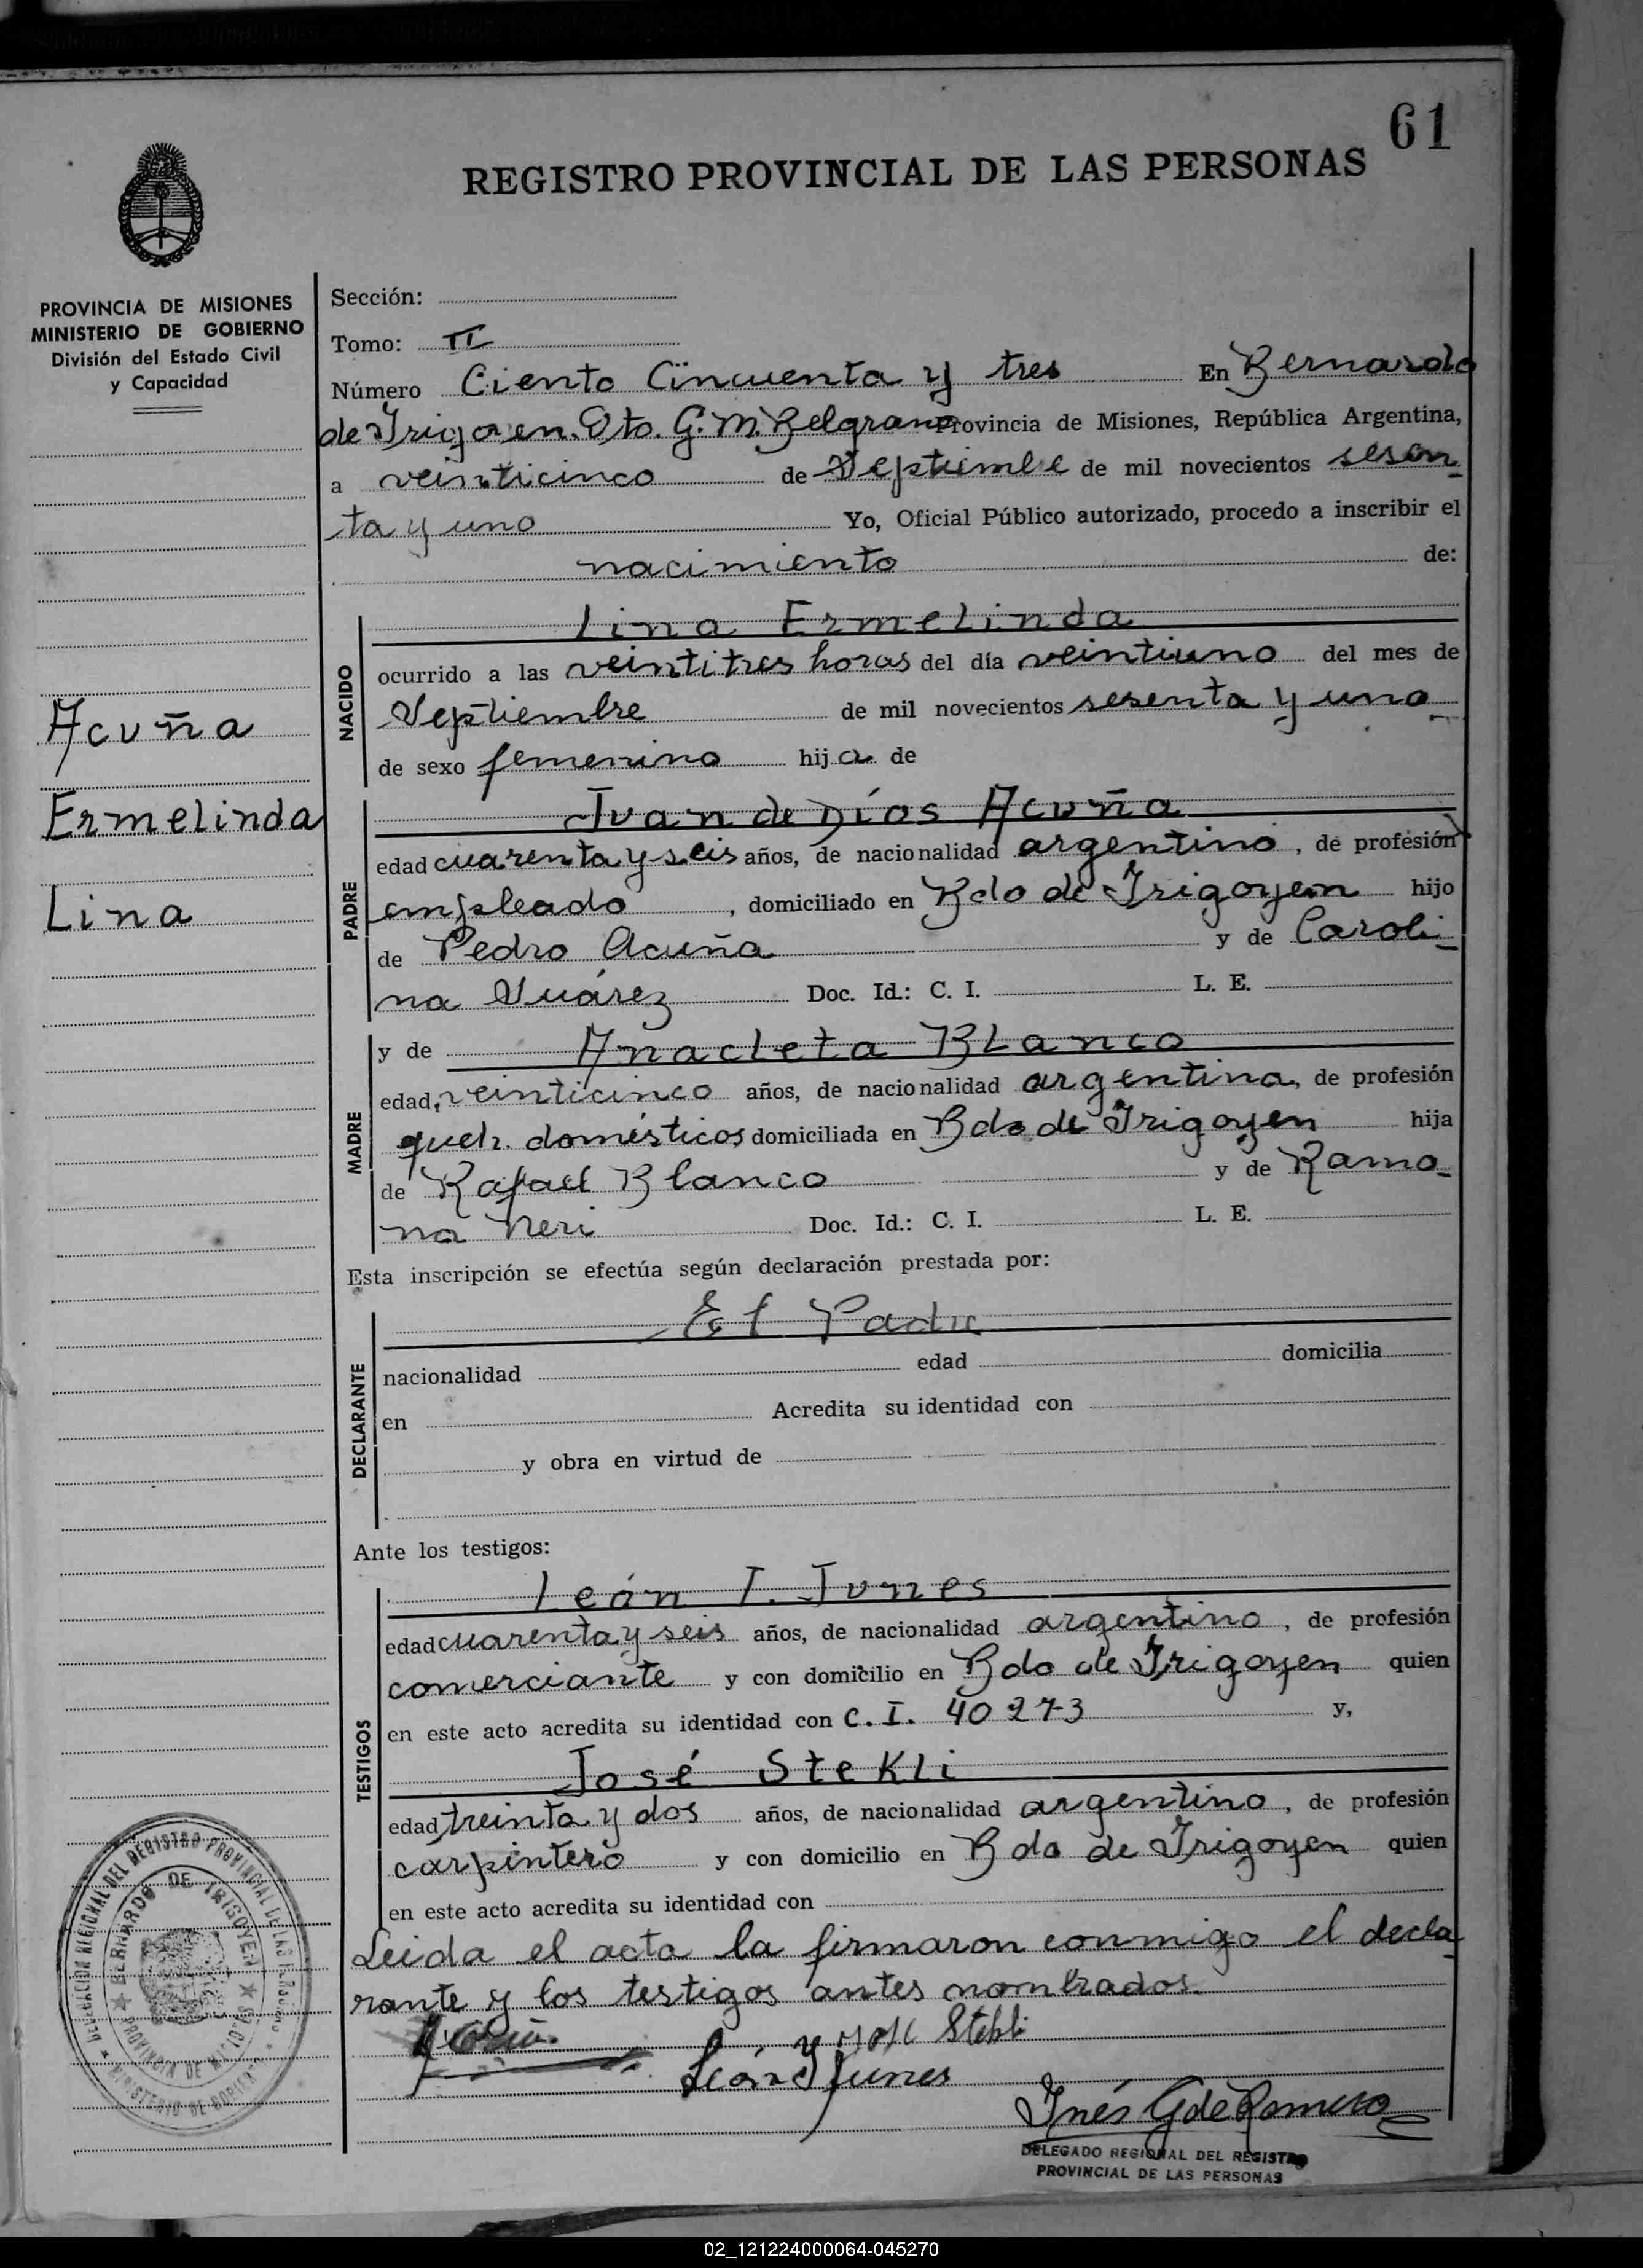 61
REGISTRO PROVINCIAL DE LAS PERSONAS
PROVINCIA DE MISIONES
MINISTERIO DE GOBIERNO
División del Estado Civil
y Capacidad
Acuña
Ermelinda
Lina
Sección:
Tomo: II
Número Ciento Cincuenta y tres En Bernardo
de Irigoyen. Dto. G. M. Belgrano Provincia de Misiones, República Argentina,
a veinticinco de Septiembe de mil novecientos sesen
ta y uno Yo, Oficial Público autorizado, procedo a inscribir el
nacimiento de:
NACIDO
Lina Ermelinda
ocurrido a las veintitres horas del día veintiuno del mes de
Septiembre de mil novecientos sesenta y uno
de sexo femenino hija de
PADRE
Juan de Díos Acuña
edad cuarenta y seis años, de nacionalidad argentino, de profesión
empleado, domiciliado en Bdo de Irigoyen hijo
de Pedro Acuña y de Caroli
na Suárez Doc. Id.: C. I. L. E.
MADRE
y de Anacleta Blanco
edad veinticinco años, de nacionalidad argentina, de profesión
queh. domésticos domiciliada en Bdo. de Irigoyen hija
de Rafael Blanco y de Ramo
na Neri Doc. Id.: C. I. L. E.
Esta inscripción se efectúa según declaración prestada por:
DECLARANTE
El Padre
nacionalidad edad domicilia
en Acredita su identidad con
y obra en virtud de
Ante los testigos:
TESTIGOS
León I. Junes
edad cuarenta y seis años, de nacionalidad argentino, de profesión
comerciante y con domicilio en Bdo de Irigoyen quien
en este acto acredita su identidad con C. I. 40273 y,
José Stekli
edad treinta y dos años, de nacionalidad argentino, de profesión
carpintero y con domicilio en Bdo de Irigoyen quien
en este acto acredita su identidad con
Leida el acta la firmaron conmigo el decla
rante y los testigos antes nombrados.
José Stekli
León I Junes
Inés G de Romero
DELEGADO REGIONAL DEL REGISTRO
PROVINCIAL DE LAS PERSONAS
DELEGACION REGIONAL DEL REGISTRO PROVINCIAL DE LAS PERSONAS
BERNARDO DE IRIGOYEN
PROVINCIA DE MISIONES
MINISTERIO DE GOBIERNO
02_121224000064-045270